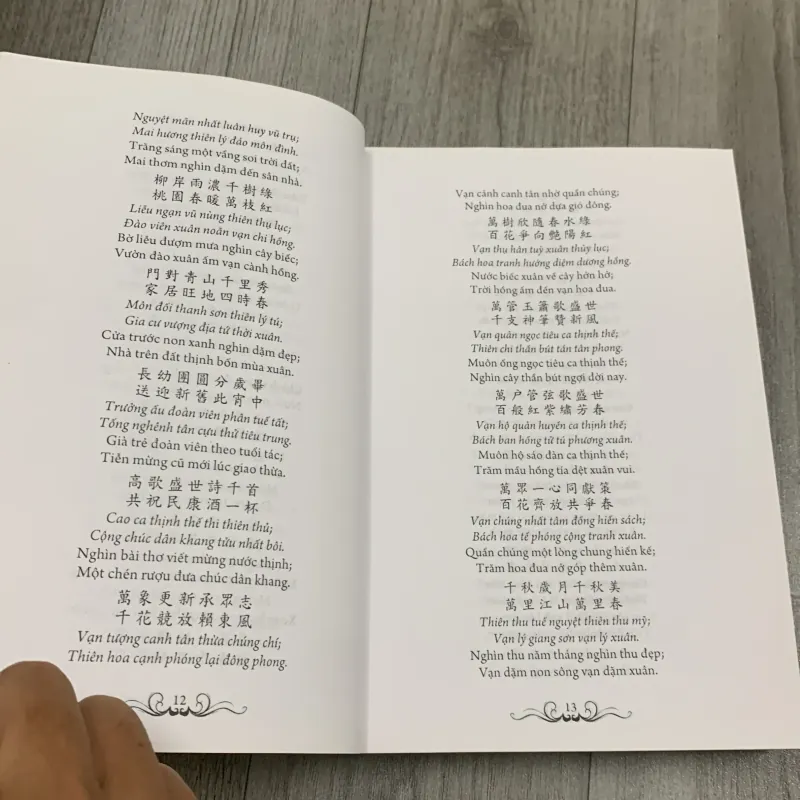 Nguyệt mãn nhất luân huy vũ trụ;
Mai hương thiên lý đáo môn đình.
Trăng sáng một vầng soi trời đất;
Mai thơm nghìn dặm đến sân nhà.
柳岸雨濃千樹綠
桃園春暖萬枝紅
Liễu ngạn vũ nùng thiên thụ lục;
Đào viên xuân noãn vạn chi hồng.
Bờ liễu đượm mưa nghìn cây biếc;
Vườn đào xuân ấm vạn cành hồng.
門對青山千里秀
家居旺地四時春
Môn đối thanh sơn thiên lý tú;
Gia cư vượng địa tứ thời xuân.
Cửa trước non xanh nghìn dặm đẹp;
Nhà trên đất thịnh bốn mùa xuân.
長幼團圓分歲畢
送迎新舊此宵中
Trưởng ấu đoàn viên phân tuế tất;
Tống nghênh tân cựu thử tiêu trung.
Già trẻ đoàn viên theo tuổi tác;
Tiễn mừng cũ mới lúc giao thừa.
高歌盛世詩千首
共祝民康酒一杯
Cao ca thịnh thế thi thiên thủ;
Cộng chúc dân khang tửu nhất bôi.
Nghìn bài thơ viết mừng nước thịnh;
Một chén rượu đưa chúc dân khang.
萬象更新承眾志
千花競放賴東風
Vạn tượng canh tân thừa chúng chí;
Thiên hoa cạnh phóng lại đông phong.
12
Vạn cảnh canh tân nhờ quần chúng;
Nghìn hoa đua nở dựa gió đông.
萬樹欣隨春水綠
百花爭向艷陽紅
Vạn thụ hân tuỳ xuân thủy lục;
Bách hoa tranh hướng diễm dương hồng.
Nước biếc xuân về cây hớn hở;
Trời hồng ấm đến vạn hoa đua.
萬管玉簫歌盛世
千支神筆贊新風
Vạn quản ngọc tiêu ca thịnh thế;
Thiên chi thần bút tán tân phong.
Muôn ống ngọc tiêu ca thịnh thế;
Nghìn cây thần bút ngợi đời nay.
萬户管弦歌盛世
百般紅紫繡芳春
Vạn hộ quản huyền ca thịnh thế;
Bách ban hồng tử tú phương xuân.
Muôn hộ sáo đàn ca thịnh thế;
Trăm mầu hồng tía dệt xuân vui.
萬眾一心同獻策
百花齊放共爭春
Vạn chúng nhất tâm đồng hiến sách;
Bách hoa tề phóng cộng tranh xuân.
Quần chúng một lòng chung hiến kế;
Trăm hoa đua nở góp thêm xuân.
千秋歲月千秋美
萬里江山萬里春
Thiên thu tuế nguyệt thiên thu mỹ;
Vạn lý giang sơn vạn lý xuân.
Nghìn thu năm tháng nghìn thu đẹp;
Vạn dặm non sông vạn dặm xuân.
13